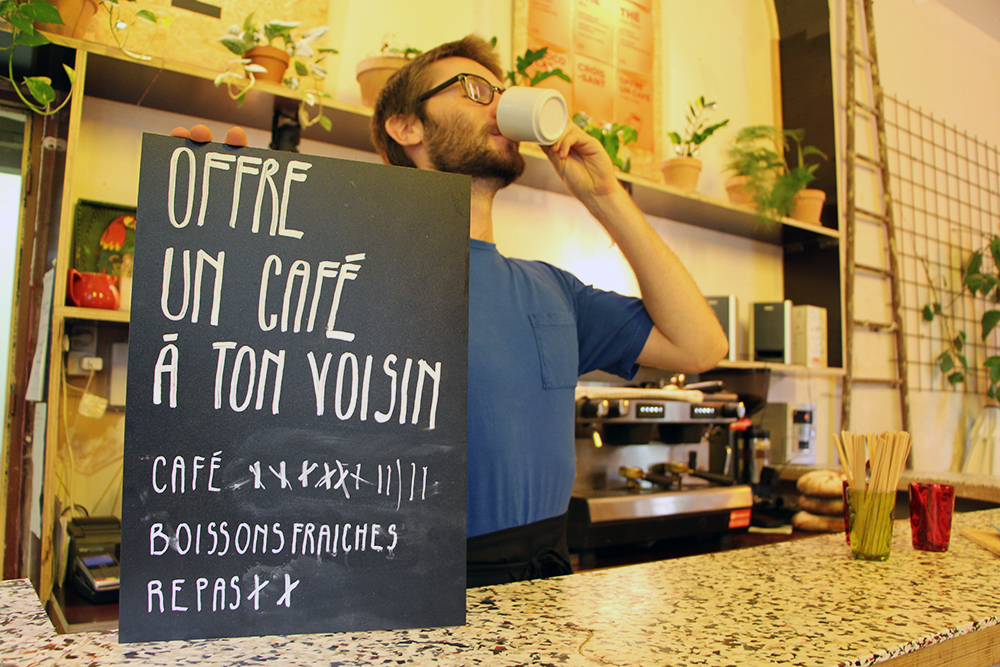 OFFRE
UN CAFÉ
À TON VOISIN
CAFÉ
BOISSONS FRAICHES
REPAS
THÉ
CROIS-
SANT